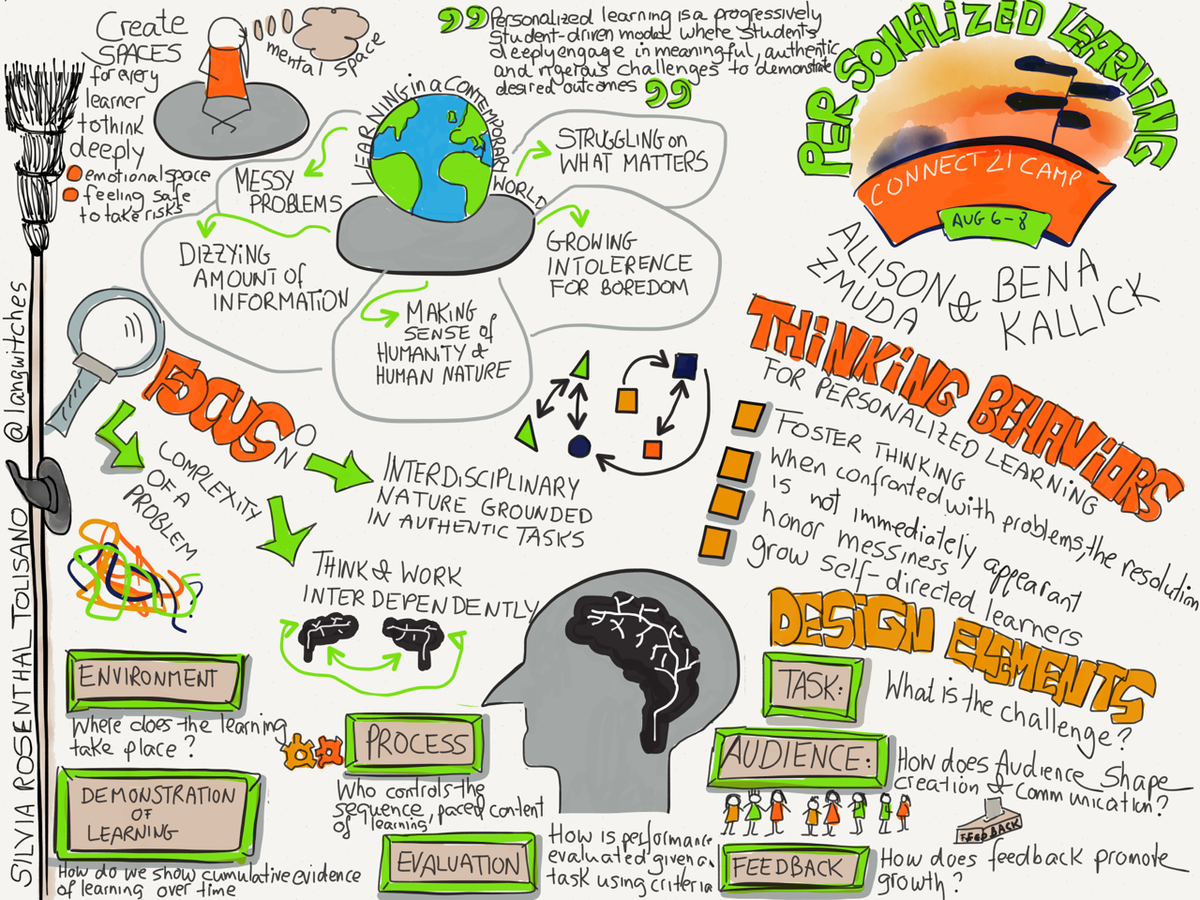 Create
SPACES
for every
learner
to think
deeply
emotional space
feeling safe
to take risks
mental space
Personalized learning is a progressively
student-driven model where students
deeply engage in meaningful, authentic
and rigerous challenges to demonstrate
desired outcomes
PERSONALIZED LEARNING
CONNECT 21 CAMP
AUG 6-8
ALLISON
ZMUDA
&
BENA
KALLICK
LEARNING in a CONTEMPORARY WORLD
MESSY
PROBLEMS
STRUGGLING on
WHAT MATTERS
DIZZYING
AMOUNT of
INFORMATION
GROWING
INTOLERENCE
FOR BOREDOM
MAKING
SENSE of
HUMANITY &
HUMAN NATURE
FOCUS
ON
COMPLEXITY
OF A
PROBLEM
INTERDISCIPLINARY
NATURE GROUNDED
IN AUTHENTIC TASKS
THINK & WORK
INTERDEPENDENTLY
THINKING BEHAVIORS
FOR PERSONALIZED LEARNING
FOSTER THINKING
when confronted with problems, the resolution
is not immediately appearant
honor messiness
grow self-directed learners
DESIGN ELEMENTS
TASK:
What is the challenge?
AUDIENCE:
How does Audience shape
creation & communication?
FEEDBACK
FEEDBACK
How does feedback promote
growth?
ENVIRONMENT
Where does the learning
take place?
PROCESS
Who controls the
sequence, paced content
of learning,
DEMONSTRATION
OF
LEARNING
How do we show cumulative evidence
of learning over time
EVALUATION
How is performance
evaluated given a
task using criteria
SILVIA ROSENTHAL TOLISANO @langwitches